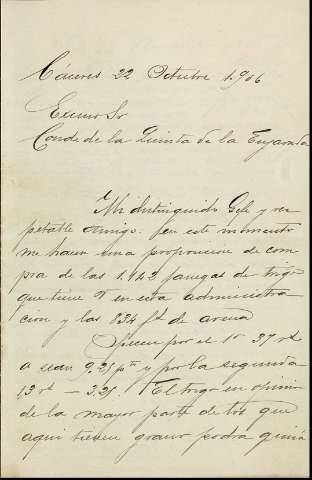 Cáceres 22 Octubre 1906
Excmo Sr
Conde de la Quinta de la Enjarada
Mi distinguido Gefe y res
petable amigo: En este momento
me hacen una proposicion de com
pra de las 1.142 fanegas de trigo
que tiene V en esta administra
cion y las 834 fs de avena
Ofrecen por el 1º 37 rs
a sean 9.25 pts y por la segunda
13 rs — 3.25. El trigo en opinion
de la mayor parte de los que
aqui tienen grano podra quizá